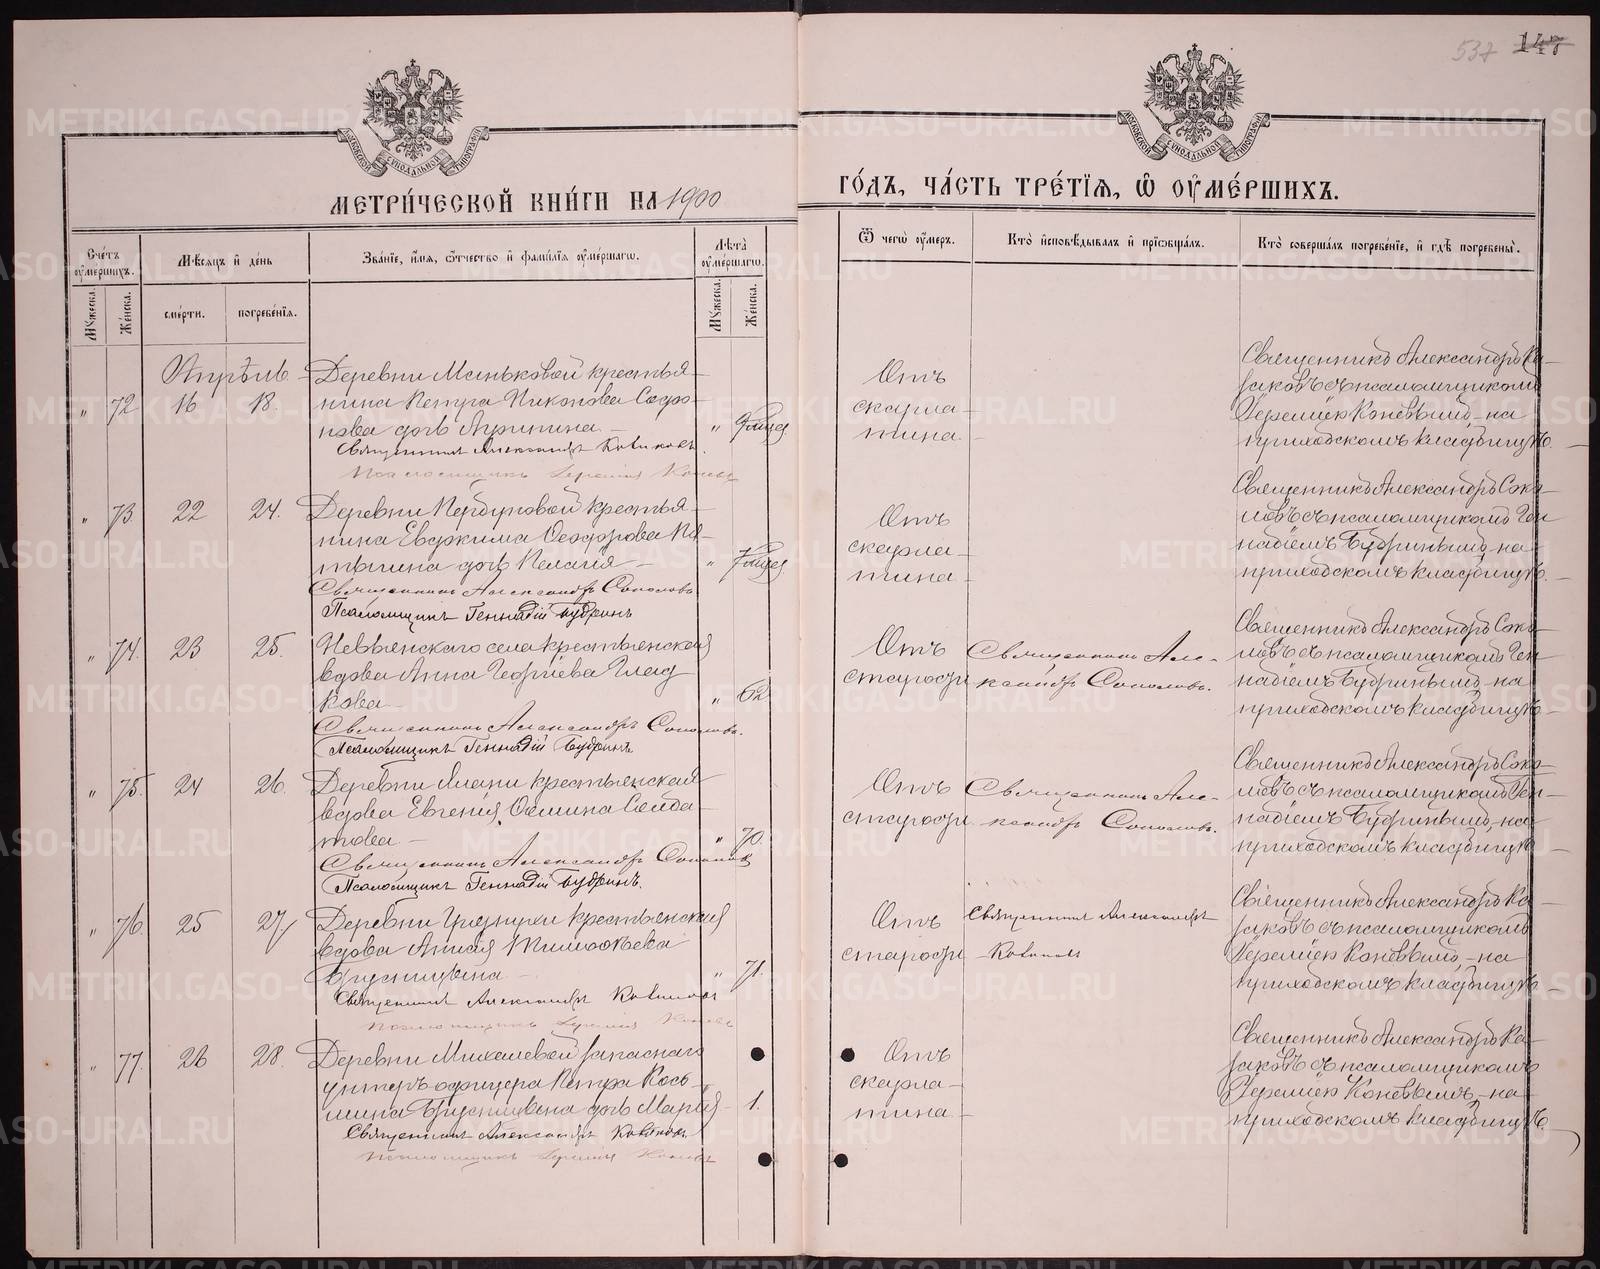 537 147
МЕТРИ́ЧЕСКОЙ КНИ́ГИ НА 1900
ГО́ДЪ, ЧА́СТЬ ТРЕ́ТІѦ, Ѽ ОУ҆МЕ́РШИХЪ.
Сче́тъ оу҆ме́ршихъ.
Мѣ́сяцъ и҆ день
Зва́нїе, и҆́мѧ, ѻ҆́тчество и҆ фами́лїѧ оу҆ме́ршагѡ.
Лѣ́та оу҆ме́ршагѡ.
Му́жеска.
Же́нска.
сме́рти.
погребе́нїѧ.
Му́жеска.
Же́нска.
Ѿ чегѡ̀ оу҆́меръ.
Кто̀ и҆сповѣ́дывалъ и҆ прїѡбща́лъ.
Кто̀ соверша́лъ погребе́нїе, и҆ гдѣ̀ погребены̀.
Апрѣль
" 72 16 18.
Деревни Маньковой крестья-
нина Петра Никонова Софо-
нова дочь Агрипина
" 9 мцев
Священникъ Александръ Казаковъ
Псаломщикъ Іеремія Коневъ
Отъ
скарла-
тина
Священникъ Александръ Ка-
заковъ съ псаломщикомъ
Іереміею Коневымъ, на
приходскомъ кладбищѣ.
" 73. 22 24.
Деревни крестья-
нина Евдокима Ѳеодорова
дочь Пелагія
" 7 мцев
Священникъ Александръ Соколовъ
Псаломщикъ Геннадій Будринъ
Отъ
скарла-
тина
Священникъ Александръ Соко-
ловъ съ псаломщикомъ Ген
надіемъ Будринымъ, на
приходскомъ кладбищѣ.
" 74. 23 25.
Невьянскаго села крестьянская
вдова Анна Георгіева Глад
кова
" 62
Священникъ Александръ Соколовъ.
Псаломщикъ Геннадій Будринъ
Отъ
старости
Священникъ Але-
ксандръ Соколовъ.
Священникъ Александръ Соко-
ловъ съ псаломщикомъ Ген
надіемъ Будринымъ, на
приходскомъ кладбищѣ.
" 75. 24 26.
Деревни крестьянская
вдова Евгенія Ѳомина Солда-
това
" 70.
Священникъ Александръ Соколовъ
Псаломщикъ Геннадій Будринъ.
Отъ
старости
Священникъ Але-
ксандръ Соколовъ.
Священникъ Александръ Соко-
ловъ съ псаломщикомъ Ген-
надіемъ Будринымъ, на
приходскомъ кладбищѣ
" 76. 25 27.
Деревни крестьянская
вдова Тимоѳѣева
Брусницына
" 71.
Священникъ Александръ Казаковъ
Псаломщикъ Іеремія Коневъ
Отъ
старости
Священникъ Александръ
Казаковъ
Священникъ Александръ Ка-
заковъ съ псаломщикомъ
Іереміею Коневымъ, на
приходскомъ кладбищѣ.
" 77. 26 28.
Деревни Михалевой запаснаго
унтеръ офицера Петра Козь-
мина Брусницына дочь Марія
" 1.
Священникъ Александръ Казаковъ
Псаломщикъ Іеремія Коневъ
Отъ
скарла-
тина
Священникъ Александръ Ка-
заковъ съ псаломщикомъ
Іереміею Коневымъ, на
приходскомъ кладбищѣ.
METRIKI.GASO-URAL.RU